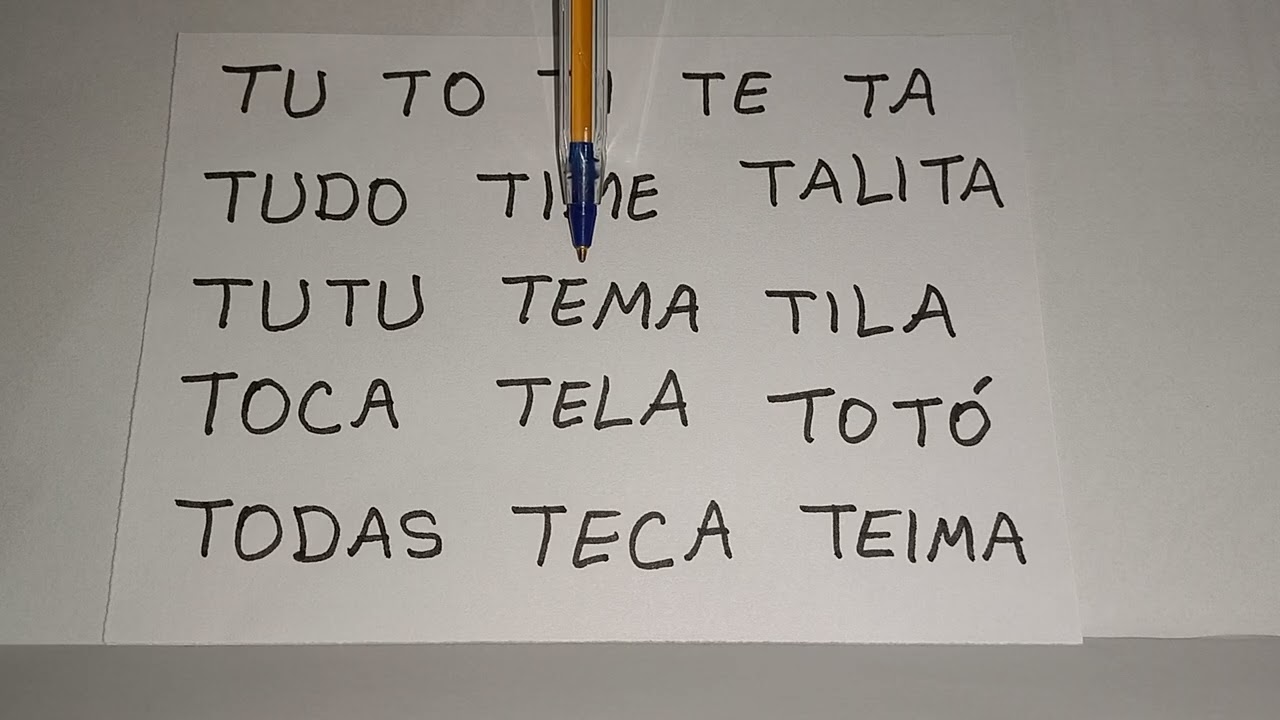 TU TO TE TA
TUDO TIME TALITA
TUTU TEMA TILA
TOCA TELA TOTÓ
TODAS TECA TEIMA